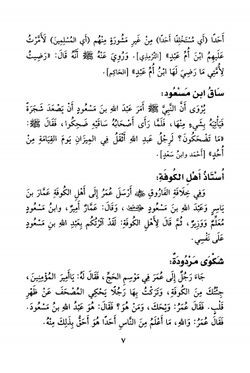 أَحَدًا (أَي مُسْتَخْلِفًا أَحَدًا) مِنْ غَيرِ مَشُورَةٍ مِنْهُم (أَي المُسْلِمِينَ) لَأَمَّرْتُ
عَلَيهِمُ ابْنَ أُمِّ عَبْدٍ» [التِّرْمِذِي]. وَرُوِيَ عَنْهُ ﷺ أَنَّهُ قَالَ: «رَضِيتُ
لِأُمَّتِي مَا رَضِيَ لَهَا ابْنُ أُمِّ عَبْدٍ» [الحَاكِم].
سَاقُ ابنِ مَسْعُودٍ:
يُرْوَى أَنَّ النَّبِيَّ ﷺ أَمَرَ عَبْدَ اللهِ بنَ مَسْعُودٍ أَنْ يَصْعَدَ شَجَرَةً
فَيَأْتِيَهُ بِشَيءٍ مِنْهَا، فَلَمَّا رَأَى أَصْحَابُهُ سَاقَيهِ ضَحِكُوا، فَقَالَ ﷺ:
«مَا تَضْحَكُونَ؟ لَرِجْلُ عَبْدِ اللهِ أَثْقَلُ فِي المِيزَانِ يَومَ القِيَامَةِ مِنْ
أُحُدٍ» [أَحْمَد وابنُ سَعْدٍ].
أُسْتَاذُ أَهْلِ الكُوفَةِ:
فِي خِلَافَةِ الفَارُوقِ أَرْسَلَ عُمَرُ إِلَى أَهْلِ الكُوفَةِ عَمَّارَ بنَ
يَاسِرٍ وَعَبْدَ اللهِ بنَ مَسْعُودٍ، وَقَالَ: عَمَّارٌ أَمِيرٌ، وابنُ مَسْعُودٍ
مُعَلِّمٌ وَوَزِيرٌ، ثُمَّ قَالَ لِأَهْلِ الكُوفَةِ: لَقَدْ آثَرْتُكُم بِعَبْدِ اللهِ بنِ مَسْعُودٍ
عَلَى نَفْسِي.
شَكْوَى مَرْدُودَةٌ:
جَاءَ رَجُلٌ إِلَى عُمَرَ فِي مَوسِمِ الحَجِّ، فَقَالَ لَهُ: يَاأَمِيرَ المُؤْمِنِينَ،
جِئْتُكَ مِنَ الكُوفَةِ، وَتَرَكْتُ بِهَا رَجُلًا يَحْكِي المُصْحَفَ عَنْ ظَهْرِ
قَلْبٍ. فَقَالَ عُمَرُ: وَيْحَكَ، وَمَنْ هُوَ؟ فَقَالَ: هُوَ عَبْدُ اللهِ بنُ مَسْعُودٍ.
فَقَالَ عُمَرُ: وَاللهِ، مَا أَعْلَمُ مِنَ النَّاسِ أَحَدًا هُوَ أَحَقُّ بِذَلِكَ مِنْهُ.
٧